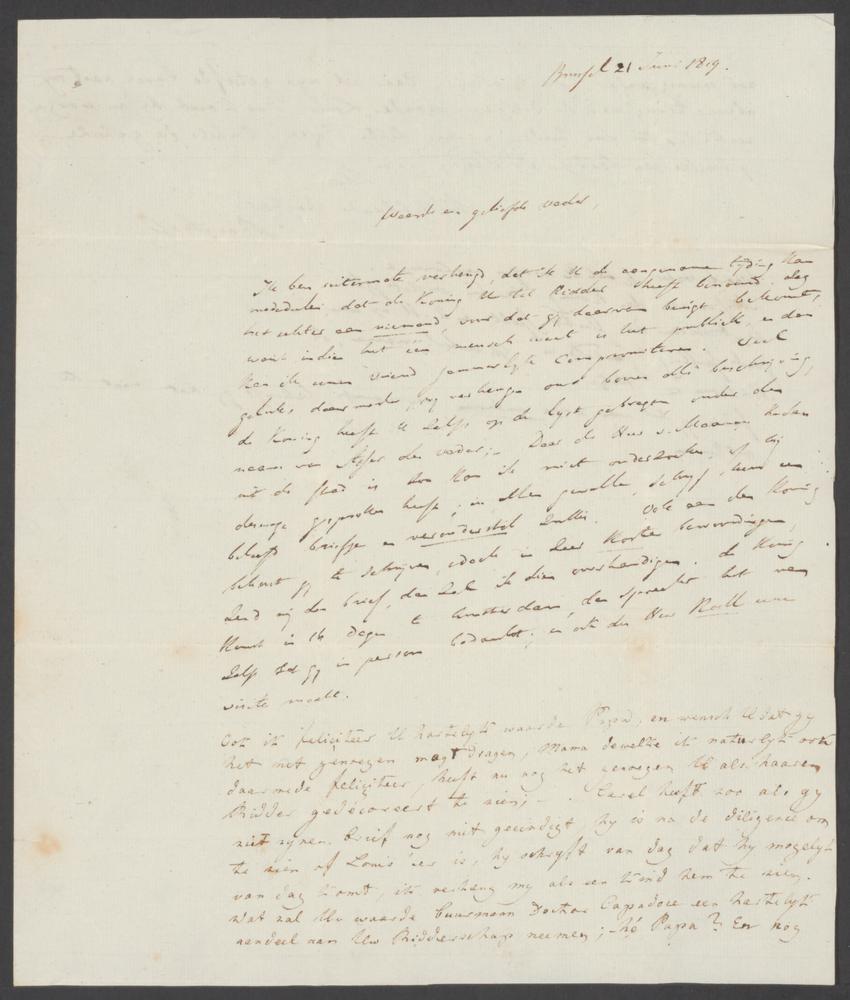 Brussel 21 Juni 1819.
Waarde en geliefde vader,
Ik ben uitermate verheugd, dat ik U de aangename tijding kan
mededeelen dat de Koning U tot Ridder heeft benoemd. Zeg
het echter aan niemand, voor dat gij daarvan berigt bekomt,
want indien het één mensch weet is het publiek, en dan
kan ik eenen vriend jammerlijk Compromitteren. Veel
geluks daarmede, wij verheugen ons boven alle beschrijving,
de Koning heeft U zelfs op de lijst gebragt onder den
naam van Asser den vader; Daar de Heer v. Maanen heden
uit de stad is dan kan ik niet onderzoeken of hij
deswege gesproken heeft; in allen gevalle, schrijf hem een
beleefd briefje en veronderstel zulks. Ook aan den Koning
behoort gij te schrijven, edoch in zeer korte bewoordingen,
zend mij den brief, dan zal ik dien overhandigen. de Koning
komt in 16 dagen te Amsterdam, dan spreekt het van
zelfs dat gij in persoon bedankt; en ook den Heer Roëll eene
visite maakt.
Ook ik feliciteer U hartelijk waarde Papa, en wensch U dat gy
het met genoegen magt dragen, Mama dewelke ik natuurlyk ook
daarmede feliciteer, heeft nu nog het genoegen U als haaren
Ridder gedécoreert te zien, - . Carel heeft zoo als gy
ziet zynen brief nog niet geeindigt, hy is na de diligence om
te zien of Louis 'er is, hy schryft van dag dat hy mogelyk
van dag komt, ik verheug my als een kind hem te zien.
Wat zal Uw waarde buurmann Doctor Capadoce een hartelyk
aandeel aan Uw Ridderschap neemen; hé Papa? En nog